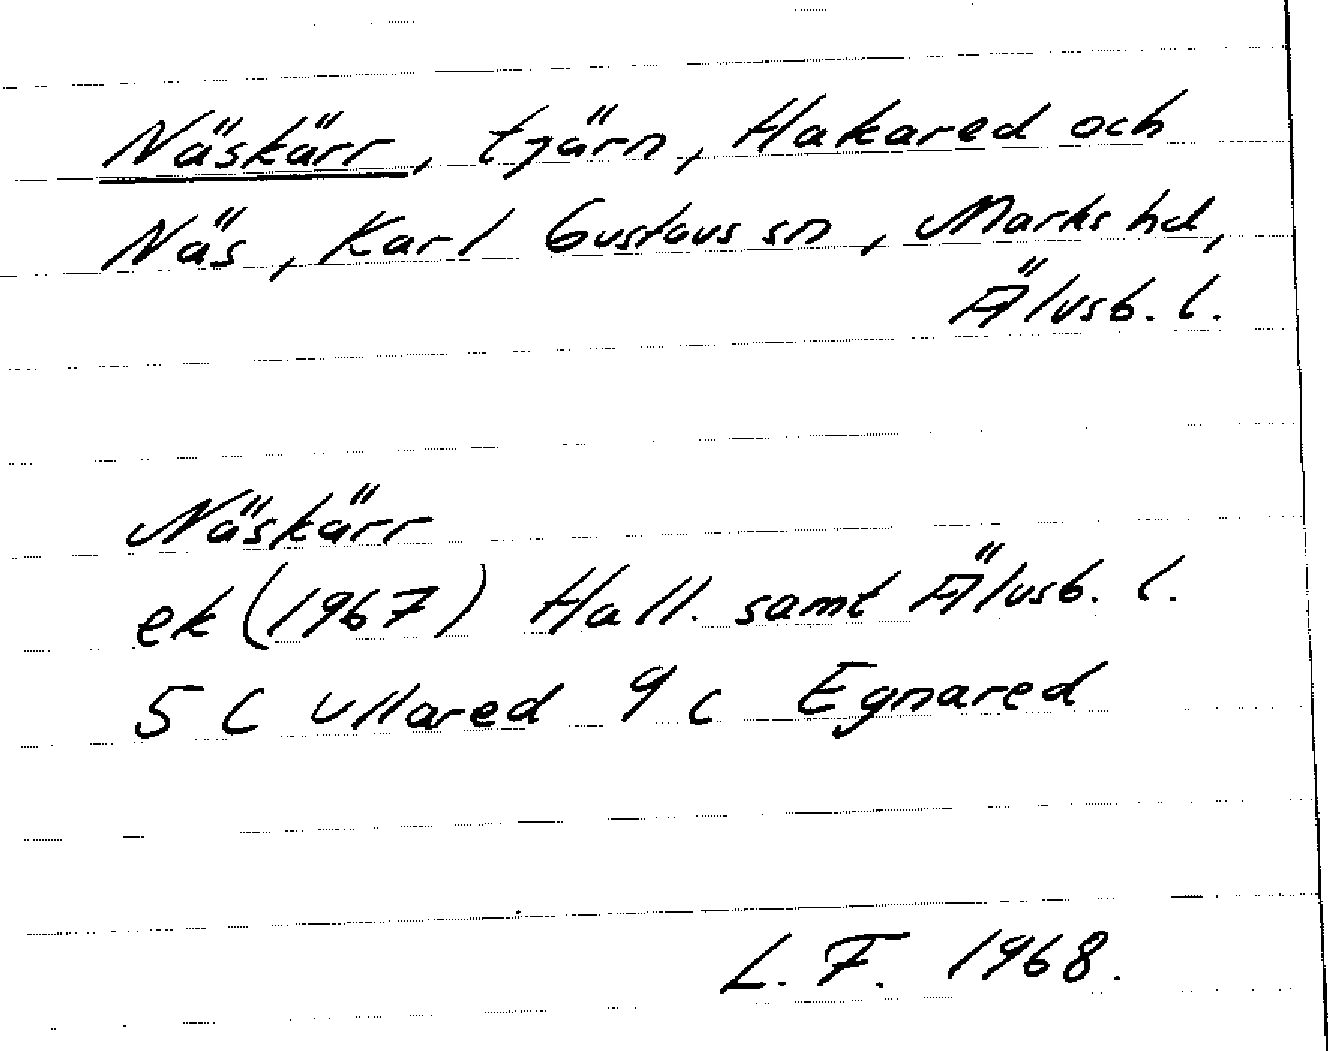 Näskärr, tjärn, Hakared och
Näs, Karl Gustavs sn, Marks hd,
Älvsb. l.
Näskärr
ek (1967) Hall. samt Älvsb. l.
5 C Ullared 9 c Egnared
L. F. 1968.